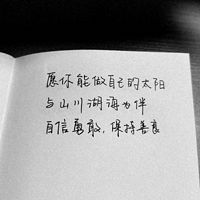 愿你能做自己的太阳
与山川湖海为伴
自信勇敢，保持善良